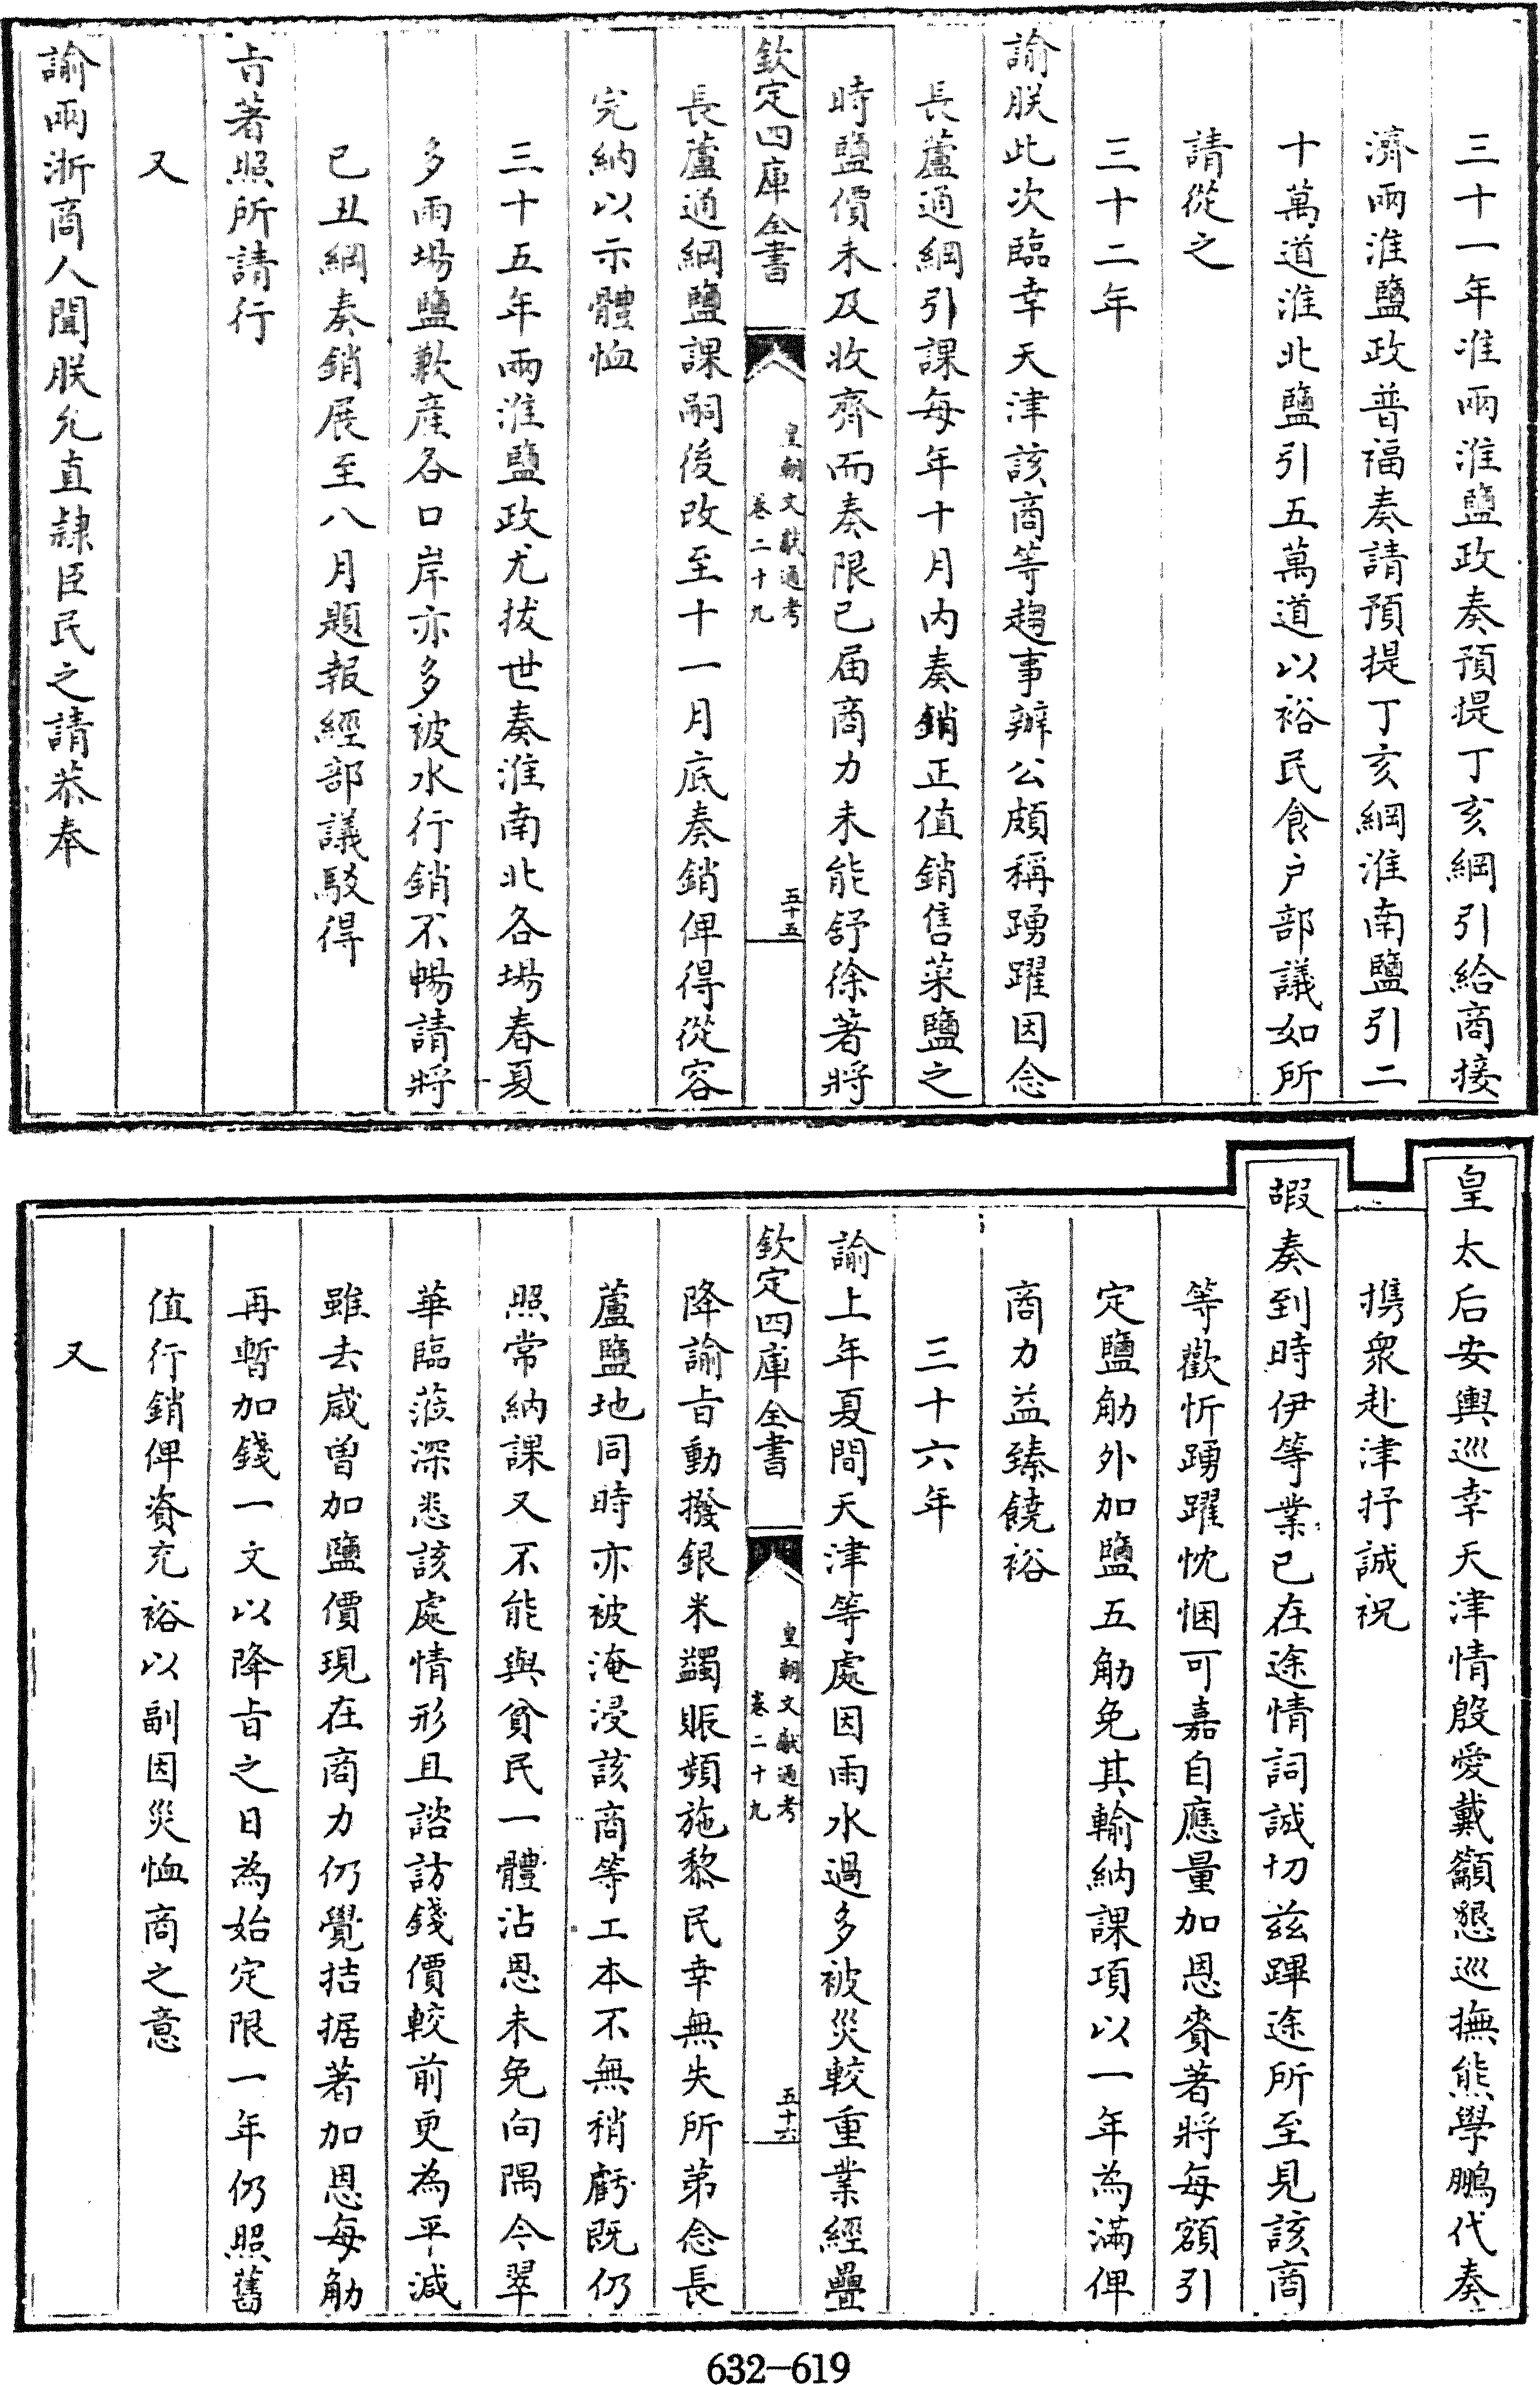 三十一年准兩淮鹽政奏預提丁亥綱引給商接
濟兩淮鹽政普福奏請預提丁亥綱淮南鹽引二
十萬道淮北鹽引五萬道以裕民食户部議如所
請從之
三十二年
諭朕此次臨幸天津該商等趨事辦公頗稱踴躍因念
長蘆通綱引課每年十月内奏銷正值銷售菜鹽之
時鹽價未及收齊而奏限已届商力未能舒徐著將
欽定四庫全書
皇朝文獻通考
卷二十九
五十五
長蘆通綱鹽課嗣後改至十一月底奏銷俾得從容
完納以示體恤
三十五年兩淮鹽政尤拔世奏淮南北各場春夏
多雨場鹽歉產各口岸亦多被水行銷不暢請將
已丑綱奏銷展至八月題報經部議駁得
㫖著照所請行
又
諭兩浙商人聞朕允直隸臣民之請恭奉
皇太后安輿巡幸天津情殷愛戴籲懇巡撫熊學鵬代奏
携衆赴津抒誠祝
嘏奏到時伊等業已在途情詞誠切兹蹕途所至見該商
等歡忻踴躍忱悃可嘉自應量加恩賚著將每額引
定鹽觔外加鹽五觔免其輸納課項以一年為滿俾
商力益臻饒裕
三十六年
諭上年夏間天津等處因雨水過多被災較重業經疊
欽定四庫全書
皇朝文獻通考
卷二十九
五十六
降諭㫖動撥銀米蠲賑頻施黎民幸無失所第念長
蘆鹽地同時亦被淹浸該商等工本不無稍虧既仍
照常納課又不能與貧民一體沾恩未免向隅今翠
華臨蒞深悉該處情形且諮訪錢價較前更為平減
雖去歲曾加鹽價現在商力仍覺拮据著加恩每觔
再暫加錢一文以降㫖之日為始定限一年仍照舊
值行銷俾資充裕以副因災恤商之意
又
632-619